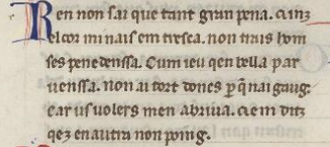 Ren non sai que tant gran pena. ainz
el cor mi nais em tresca. non trais hom
ses penedenssa. Cum ieu qen bella par
uenssa. non ai tort dones p̱ q̄ nai gaug.
ear us uolers men abriua. ae m ditz
qez en autra non poing.